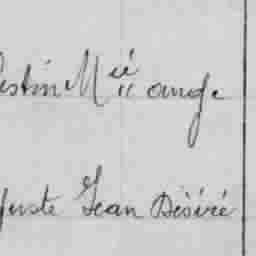 estin Mie ange
guste Jean Désiré